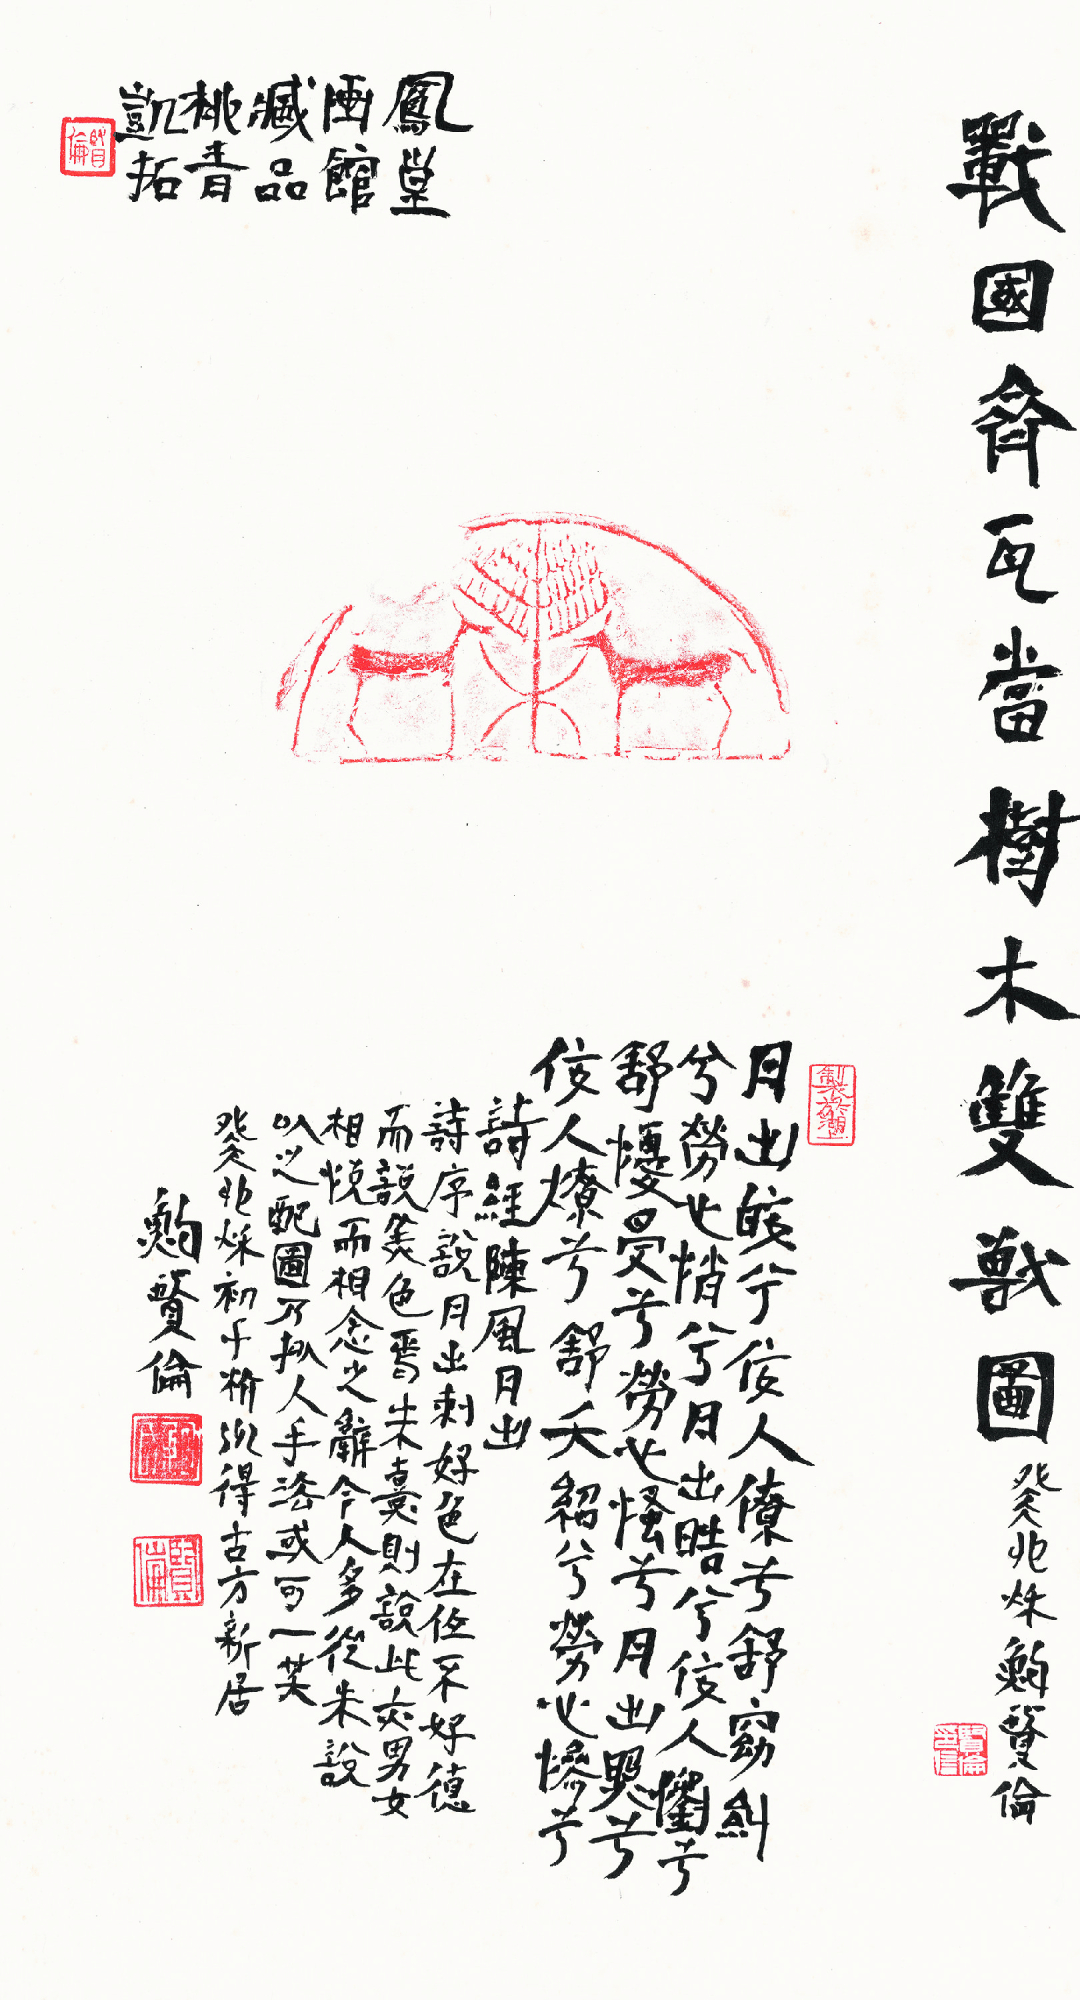 戰國齊瓦當樹木雙獸圖
癸卯秌鮑賢倫
鳳堂
画館
臧品
桃青
凱拓
賢倫
月出皎兮佼人僚兮舒窈糾
兮勞心悄兮月出晧兮佼人懰兮
舒懮受兮勞心慅兮月出照兮
佼人燎兮舒夭紹兮勞心慘兮
詩經陳風月出
詩序說月出刺好色在位不好德
而說美色焉朱熹則說此亦男女
相悅而相念之辭今人多從朱說
以之配圖乃拟人手法或可一笑
癸卯秌初于得古方新居
鮑賢倫
賢倫